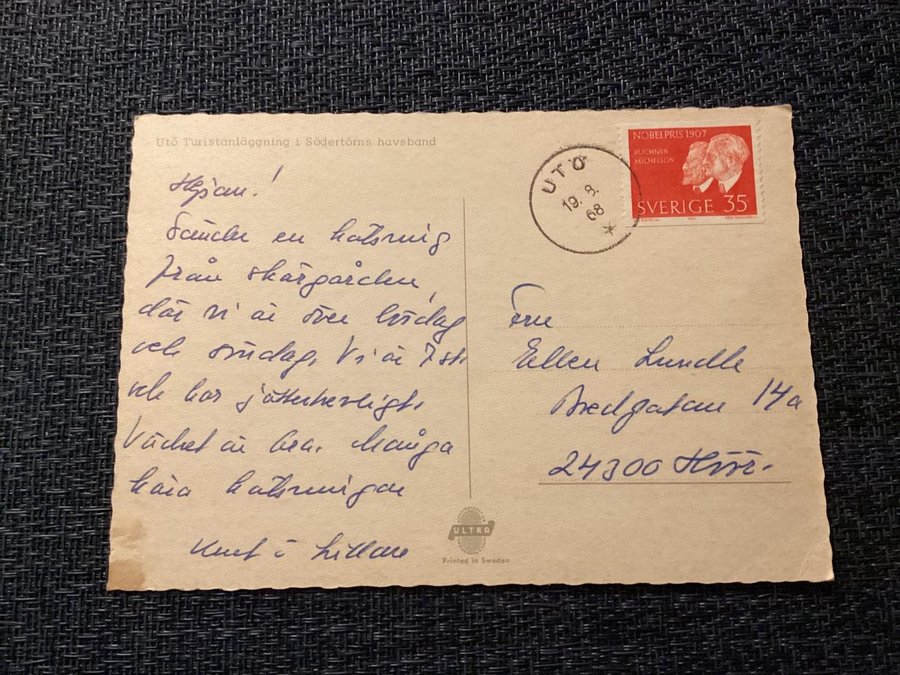 Utö Turistanläggning i Södertörns havsband
Hejsan!
Sänder en hälsning
från skärgården,
där vi är över lördag
och söndag. Vi är 7 st
och har jättehärligt.
Vädret är bra. Många
kära hälsningar
Kurt o Lillan
UTÖ
19. 8.
68
NOBELPRIS 1907
BUCHNER
MICHELSON
SVERIGE 35
Fru
Ellen Lundle
Bredgatan 14a
24300 Höör.
ULTRA
Printed in Sweden